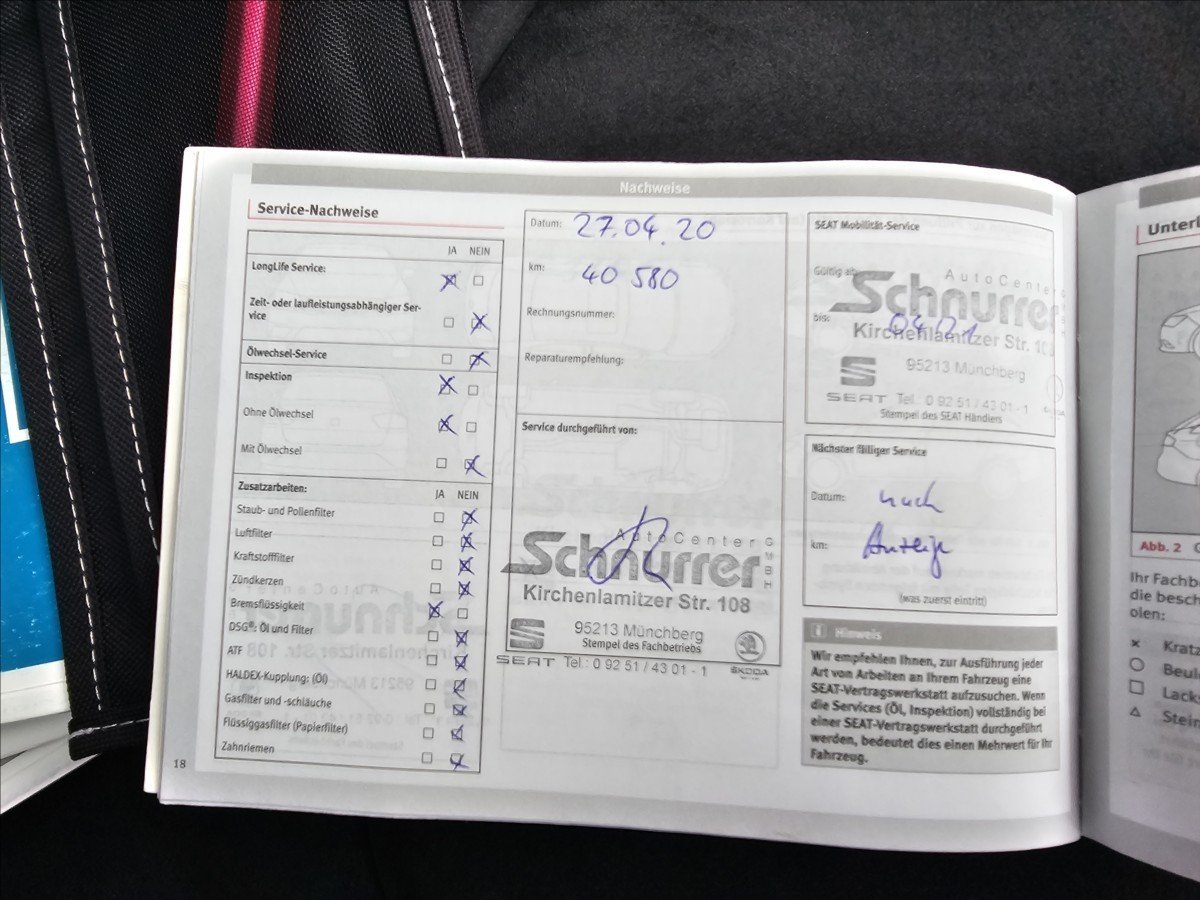 Nachweise
Service-Nachweise
JA NEIN
LongLife Service:
Zeit- oder laufleistungsabhängiger Ser-
vice
Ölwechsel-Service
Inspektion
Ohne Ölwechsel
Mit Ölwechsel
Zusatzarbeiten: JA NEIN
Staub- und Pollenfilter
Luftfilter
Kraftstofffilter
Zündkerzen
Bremsflüssigkeit
DSG®: Öl und Filter
ATF
HALDEX-Kupplung: (Öl)
Gasfilter und -schläuche
Flüssiggasfilter (Papierfilter)
Zahnriemen
18
Datum: 27.04.20
km: 40 580
Rechnungsnummer:
Reparaturempfehlung:
Service durchgeführt von:
AutoCenter GMBH
Schnurrer
Kirchenlamitzer Str. 108
95213 Münchberg
Stempel des Fachbetriebs
SEAT Tel.: 0 92 51 / 43 01 - 1 ŠKODA
SEAT Mobilität-Service
Gültig ab:
AutoCenter
Schnurrer
bis: 04.21
Kirchenlamitzer Str. 108
95213 Münchberg
SEAT Tel.: 0 92 51 / 43 01 - 1
Stempel des SEAT Händlers
Nächster fälliger Service
Datum: nach
km: Anzeige
(was zuerst eintritt)
Hinweis
Wir empfehlen Ihnen, zur Ausführung jeder
Art von Arbeiten an Ihrem Fahrzeug eine
SEAT-Vertragswerkstatt aufzusuchen. Wenn
die Services (Öl, Inspektion) vollständig bei
einer SEAT-Vertragswerkstatt durchgeführt
werden, bedeutet dies einen Mehrwert für Ihr
Fahrzeug.
Unterl
Abb. 2
Ihr Fachb
die besch
olen:
Kratz
Beul
Lack
Stein